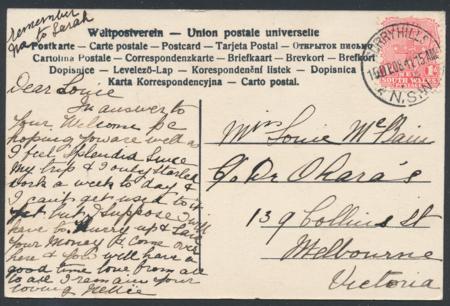 remember
me to Sarah
Weltpostverein – Union postale universelle
Postkarte – Carte postale – Postcard – Tarjeta Postal – Открытое письмо
Cartolina Postale – Correspondenzkarte – Briefkaart – Brevkort – Brefkort
Dopisnice – Levelező-Lap – Korespondenční listek – Dopisnica
Karta Korrespondencyjna – Cartão postal.
SURRY HILLS
N.S.W
SOUTH WALES
Dear Louie
In answer to
your Welcome P.C
hoping you are well as
I feel splendid since
My trip & I only started
work a week to day &
I can't get used to it
yet but I suppose I will
have to hurry up & save
your Money & come over
here & you will have a
good time love from all
to all I remain your
loving Nellie
Miss Louie McBain
C/o Dr Oharas
139 Collins St
Melbourne
Victoria